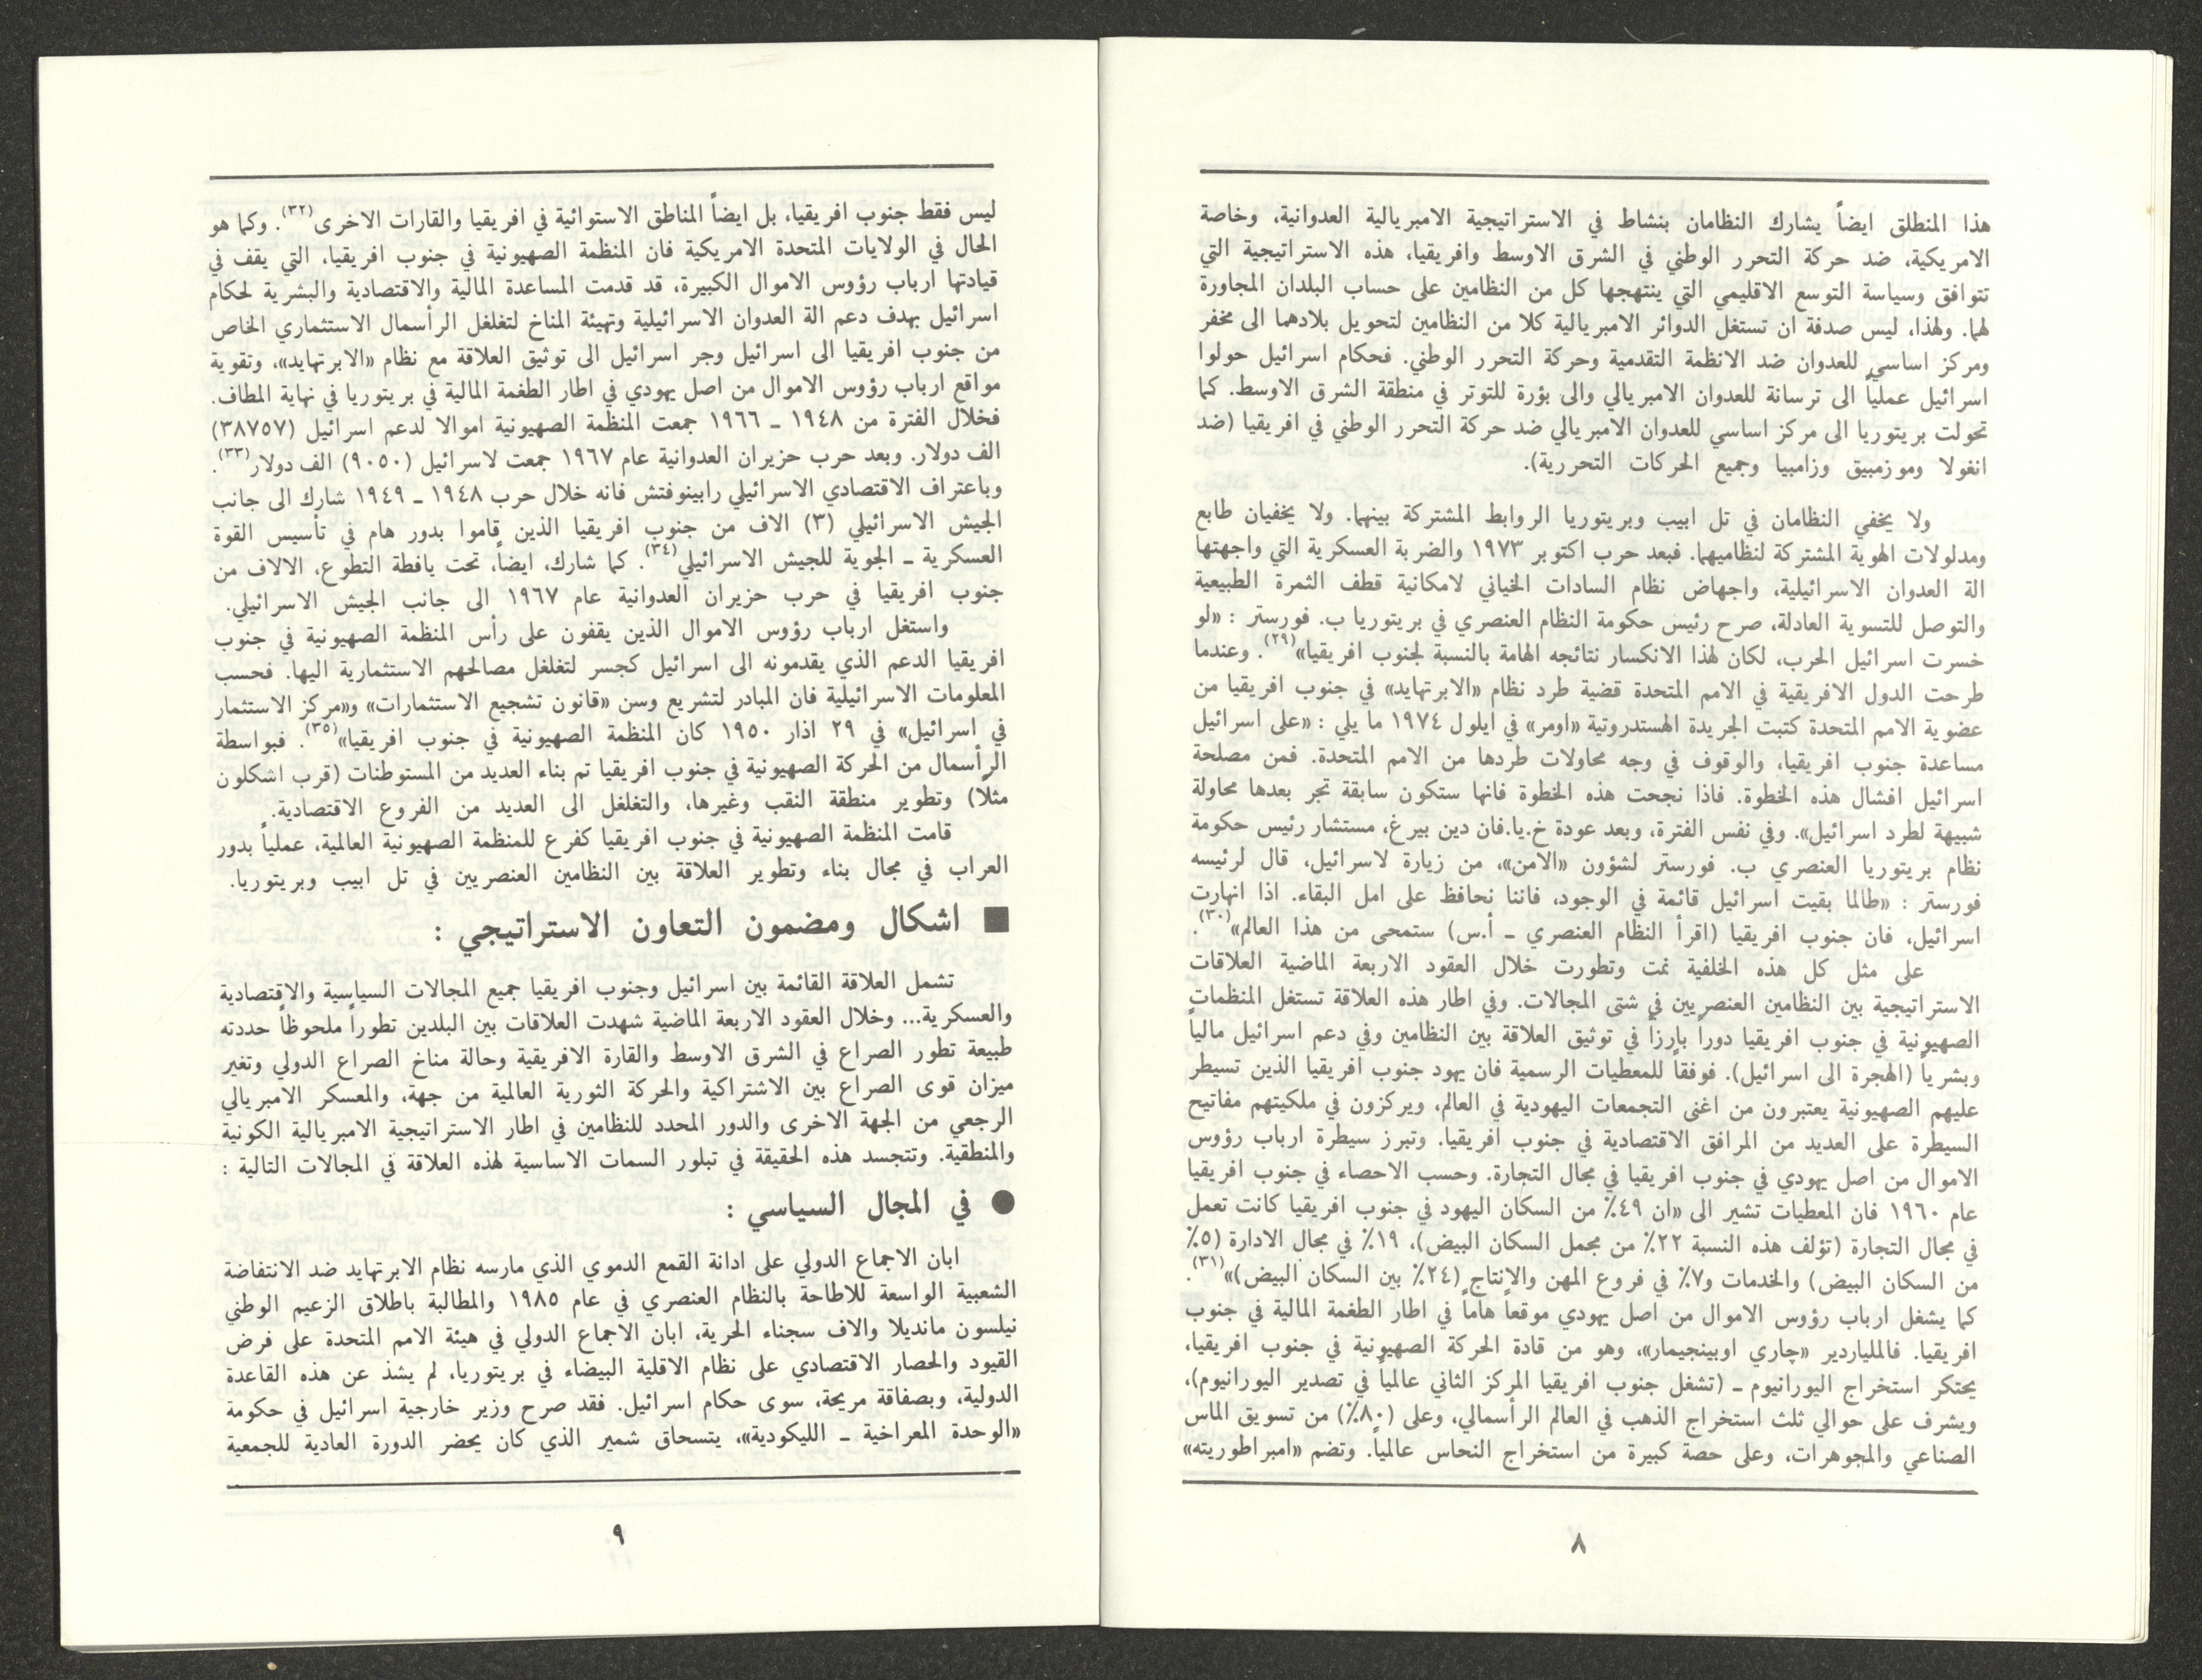 هذا المنطلق ايضاً يشارك النظامان بنشاط في الاستراتيجية الامبريالية العدوانية، وخاصة
الامريكية، ضد حركة التحرر الوطني في الشرق الاوسط وافريقيا، هذه الاستراتيجية التي
تتوافق وسياسة التوسع الاقليمي التي ينتهجها كل من النظامين على حساب البلدان المجاورة
لهما. ولهذا، ليس صدفة ان تستغل الدوائر الامبريالية كلا من النظامين لتحويل بلادهما الى مخفر
ومركز اساسي للعدوان ضد الانظمة التقدمية وحركة التحرر الوطني. فحكام اسرائيل حولوا
اسرائيل عملياً الى ترسانة للعدوان الامبريالي والى بؤرة للتوتر في منطقة الشرق الاوسط. كما
تحولت بريتوريا الى مركز اساسي للعدوان الامبريالي ضد حركة التحرر الوطني في افريقيا (ضد
انغولا وموزمبيق وزامبيا وجميع الحركات التحررية).
ولا يخفي النظامان في تل ابيب وبريتوريا الروابط المشتركة بينهما. ولا يخفيان طابع
ومدلولات الهوية المشتركة لنظاميهما. فبعد حرب اكتوبر ١٩٧٣ والضربة العسكرية التي واجهتها
الة العدوان الاسرائيلية، واجهاض نظام السادات الخياني لامكانية قطف الثمرة الطبيعية
والتوصل للتسوية العادلة، صرح رئيس حكومة النظام العنصري في بريتوريا ب. فورستر : «لو
خسرت اسرائيل الحرب، لكان لهذا الانكسار نتائجه الهامة بالنسبة لجنوب افريقيا»(٢٩). وعندما
طرحت الدول الافريقية في الامم المتحدة قضية طرد نظام «الابرتهايد» في جنوب افريقيا من
عضوية الامم المتحدة كتبت الجريدة الهستدروتية «اومر» في ايلول ١٩٧٤ ما يلي : «على اسرائيل
مساعدة جنوب افريقيا، والوقوف في وجه محاولات طردها من الامم المتحدة. فمن مصلحة
اسرائيل افشال هذه الخطوة. فاذا نجحت هذه الخطوة فانها ستكون سابقة تجر بعدها محاولة
شبيهة لطرد اسرائيل». وفي نفس الفترة، وبعد عودة خ.يا.فان دين بيرغ، مستشار رئيس حكومة
نظام بريتوريا العنصري ب. فورستر لشؤون «الامن»، من زيارة لاسرائيل، قال لرئيسه
فورستر : «طالما بقيت اسرائيل قائمة في الوجود، فاننا نحافظ على امل البقاء. اذا انهارت
اسرائيل، فان جنوب افريقيا (اقرأ النظام العنصري ـ أ.س) ستمحى من هذا العالم»(٣٠).
على مثل كل هذه الخلفية نمت وتطورت خلال العقود الاربعة الماضية العلاقات
الاستراتيجية بين النظامين العنصريين في شتى المجالات. وفي اطار هذه العلاقة تستغل المنظمات
الصهيونية في جنوب افريقيا دوراً بارزاً في توثيق العلاقة بين النظامين وفي دعم اسرائيل مالياً
وبشرياً (الهجرة الى اسرائيل). فوفقاً للمعطيات الرسمية فان يهود جنوب افريقيا الذين تسيطر
عليهم الصهيونية يعتبرون من اغنى التجمعات اليهودية في العالم، ويركزون في ملكيتهم مفاتيح
السيطرة على العديد من المرافق الاقتصادية في جنوب افريقيا. وتبرز سيطرة ارباب رؤوس
الاموال من اصل يهودي في جنوب افريقيا في مجال التجارة. وحسب الاحصاء في جنوب افريقيا
عام ١٩٦٠ فان المعطيات تشير الى «ان ٤٩٪ من السكان اليهود في جنوب افريقيا كانت تعمل
في مجال التجارة (تؤلف هذه النسبة ٢٢٪ من مجمل السكان البيض)، ١٩٪ في مجال الادارة (٥٪
من السكان البيض) والخدمات و٧٪ في فروع المهن والانتاج (٢٤٪ بين السكان البيض)»(٣١).
كما يشغل ارباب رؤوس الاموال من اصل يهودي موقعاً هاماً في اطار الطغمة المالية في جنوب
افريقيا. فالملياردير «چاري اوبينجيمار»، وهو من قادة الحركة الصهيونية في جنوب افريقيا،
يحتكر استخراج اليورانيوم ـ (تشغل جنوب افريقيا المركز الثاني عالمياً في تصدير اليورانيوم)،
ويشرف على حوالي ثلث استخراج الذهب في العالم الرأسمالي، وعلى (٨٠٪) من تسويق الماس
الصناعي والمجوهرات، وعلى حصة كبيرة من استخراج النحاس عالمياً. وتضم «امبراطوريته»
٨
ليس فقط جنوب افريقيا، بل ايضاً المناطق الاستوائية في افريقيا والقارات الاخرى(٣٢). وكما هو
الحال في الولايات المتحدة الامريكية فان المنظمة الصهيونية في جنوب افريقيا، التي يقف في
قيادتها ارباب رؤوس الاموال الكبيرة، قد قدمت المساعدة المالية والاقتصادية والبشرية لحكام
اسرائيل بهدف دعم الة العدوان الاسرائيلية وتهيئة المناخ لتغلغل الرأسمال الاستثماري الخاص
من جنوب افريقيا الى اسرائيل وجر اسرائيل الى توثيق العلاقة مع نظام «الابرتهايد»، وتقوية
مواقع ارباب رؤوس الاموال من اصل يهودي في اطار الطغمة المالية في بريتوريا في نهاية المطاف.
فخلال الفترة من ١٩٤٨ ـ ١٩٦٦ جمعت المنظمة الصهيونية اموالا لدعم اسرائيل (٣٨٧٥٧)
الف دولار. وبعد حرب حزيران العدوانية عام ١٩٦٧ جمعت لاسرائيل (٩٠٥٠) الف دولار(٣٣).
وباعتراف الاقتصادي الاسرائيلي رابينوفتش فانه خلال حرب ١٩٤٨ ـ ١٩٤٩ شارك الى جانب
الجيش الاسرائيلي (٣) الاف من جنوب افريقيا الذين قاموا بدور هام في تأسيس القوة
العسكرية ـ الجوية للجيش الاسرائيلي(٣٤). كما شارك، ايضاً، تحت يافطة التطوع، الالاف من
جنوب افريقيا في حرب حزيران العدوانية عام ١٩٦٧ الى جانب الجيش الاسرائيلي.
واستغل ارباب رؤوس الاموال الذين يقفون على رأس المنظمة الصهيونية في جنوب
افريقيا الدعم الذي يقدمونه الى اسرائيل كجسر لتغلغل مصالحهم الاستثمارية اليها. فحسب
المعلومات الاسرائيلية فان المبادر لتشريع وسن «قانون تشجيع الاستثمارات» و«مركز الاستثمار
في اسرائيل» في ٢٩ اذار ١٩٥٠ كان المنظمة الصهيونية في جنوب افريقيا»(٣٥). فبواسطة
الرأسمال من الحركة الصهيونية في جنوب افريقيا تم بناء العديد من المستوطنات (قرب اشكلون
مثلاً) وتطوير منطقة النقب وغيرها، والتغلغل الى العديد من الفروع الاقتصادية.
قامت المنظمة الصهيونية في جنوب افريقيا كفرع للمنظمة الصهيونية العالمية، عملياً بدور
العراب في مجال بناء وتطوير العلاقة بين النظامين العنصريين في تل ابيب وبريتوريا.
■ اشكال ومضمون التعاون الاستراتيجي :
تشمل العلاقة القائمة بين اسرائيل وجنوب افريقيا جميع المجالات السياسية والاقتصادية
والعسكرية... وخلال العقود الاربعة الماضية شهدت العلاقات بين البلدين تطوراً ملحوظاً حددته
طبيعة تطور الصراع في الشرق الاوسط والقارة الافريقية وحالة مناخ الصراع الدولي وتغير
ميزان قوى الصراع بين الاشتراكية والحركة الثورية العالمية من جهة، والمعسكر الامبريالي
الرجعي من الجهة الاخرى والدور المحدد للنظامين في اطار الاستراتيجية الامبريالية الكونية
والمنطقية. وتتجسد هذه الحقيقة في تبلور السمات الاساسية لهذه العلاقة في المجالات التالية :
● في المجال السياسي :
ابان الاجماع الدولي على ادانة القمع الدموي الذي مارسه نظام الابرتهايد ضد الانتفاضة
الشعبية الواسعة للاطاحة بالنظام العنصري في عام ١٩٨٥ والمطالبة باطلاق الزعيم الوطني
نيلسون مانديلا والاف سجناء الحرية، ابان الاجماع الدولي في هيئة الامم المتحدة على فرض
القيود والحصار الاقتصادي على نظام الاقلية البيضاء في بريتوريا، لم يشذ عن هذه القاعدة
الدولية، وبصفاقة مريحة، سوى حكام اسرائيل. فقد صرح وزير خارجية اسرائيل في حكومة
«الوحدة المعراخية ـ الليكودية»، يتسحاق شمير الذي كان يحضر الدورة العادية للجمعية
٩